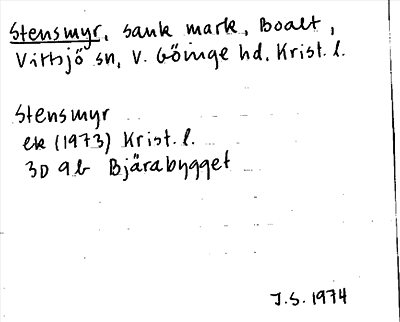 Stensmyr, sank mark, Boalt,
Vittsjö sn, V. Göinge hd, Krist. l.
Stensmyr
ek (1973) Krist. l.
3D 9b Bjärabygget
J.S. 1974